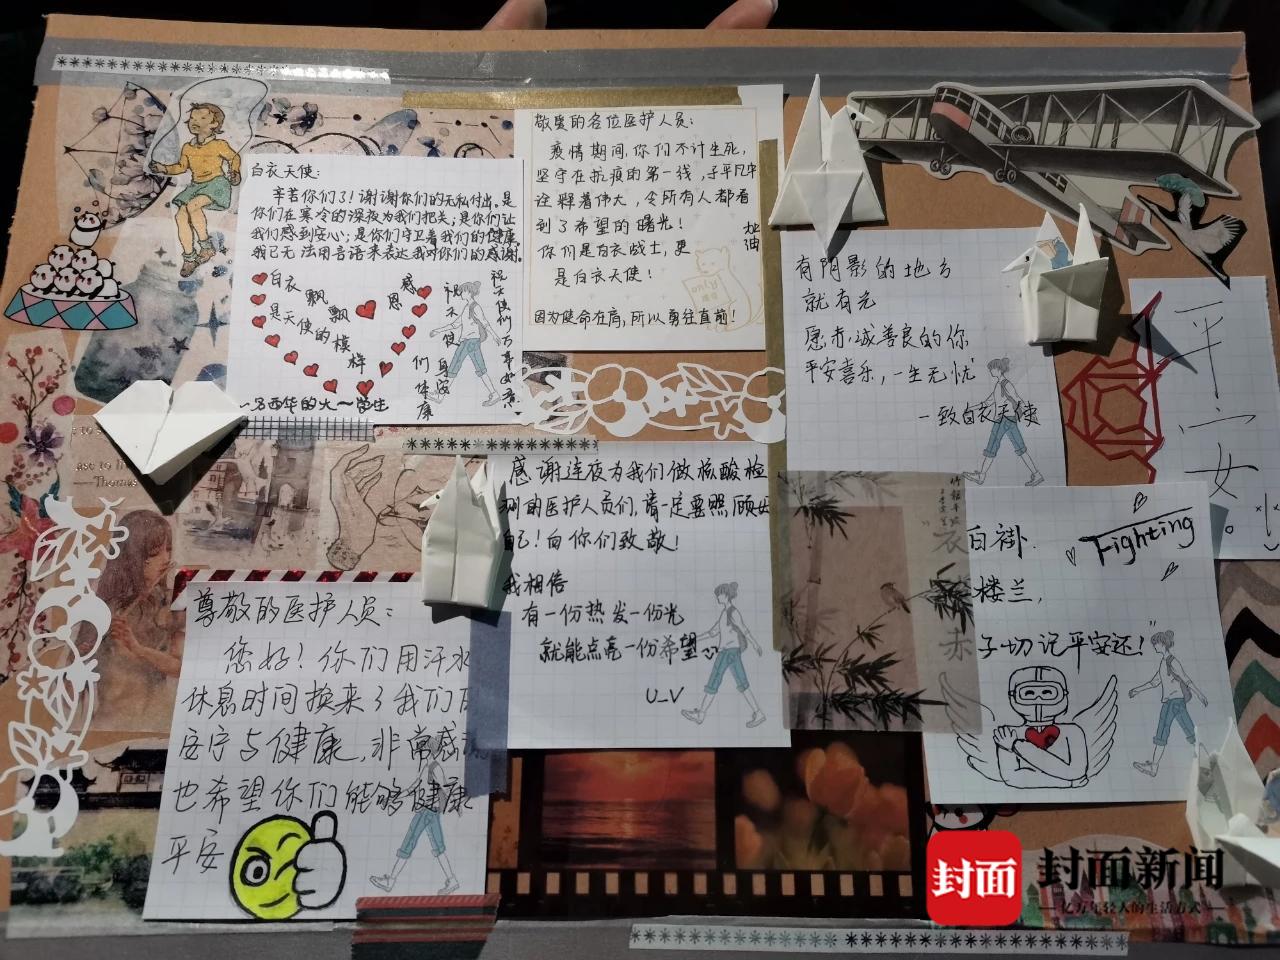 白衣天使:
辛苦你们了!谢谢你们的无私付出。是
你们在寒冷的深夜为我们把关;是你们让
我们感到安心;是你们守卫着我们的健康。
我已无法用言语来表达我对你们的感谢。
白衣飘飘
是天使的模样
感恩
祝天使们身体安康
祝天使们万事如意!
~西华的大一学生
敬爱的各位医护人员:
疫情期间,你们不计生死,
坚守在抗疫的第一线,于平凡中
诠释着伟大,令所有人都看
到了希望的曙光!
你们是白衣战士,更
是白衣天使!
加油
only
因为使命在肩,所以勇往直前!
有阴影的地方
就有光
愿赤诚善良的你
平安喜乐,一生无忧
一致白衣天使
平安。
感谢连夜为我们做核酸检
测的医护人员们,请一定要照顾好
自己!向你们致敬!
我相信
有一份热发一份光
就能点亮一份希望
U_V
尊敬的医护人员:
您好!你们用汗水
休息时间换来了我们的
安宁与健康,非常感谢
也希望你们能够健康
平安
Fighting
衣白褂.
楼兰,
赤子切记平安还!"
——Thomas
封面
封面新闻
亿万年轻人的生活方式